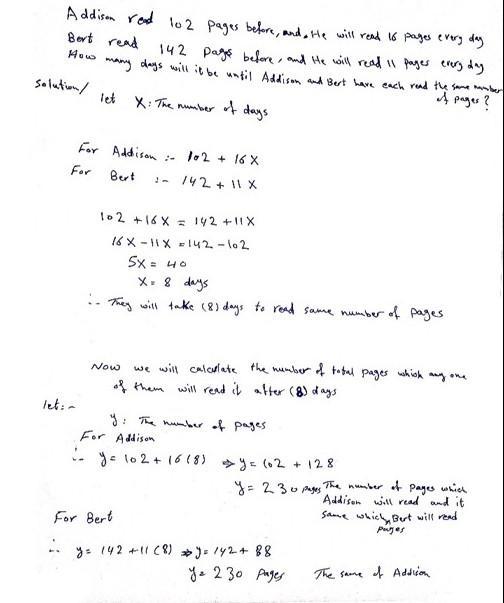 Addison read 102 pages before, and. He will read 16 pages every day
Bert read 142 pages before, and He will read 11 pages every day
How many days will it be until Addison and Bert have each read the same number
of pages?
Solution/
let X: The number of days
For Addison :- 102 + 16X
For Bert :- 142 + 11X
102 + 16X = 142 + 11X
16X - 11X = 142 - 102
5X = 40
X = 8 days
∴ They will take (8) days to read same number of pages
Now we will calculate the number of total pages which any one
of them will read it after (8) days
let:-
y: The number of pages
For Addison
∴ y = 102 + 16(8) ⇒ y = 102 + 128
y = 230 pages The number of pages which
Addison will read and it
same which Bert will read
pages
For Bert
∴ y = 142 + 11(8) ⇒ y = 142 + 88
y = 230 pages The same of Addison